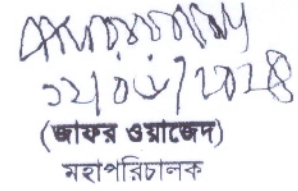 ১২/০৬/২০২৪
(জাফর ওয়াজেদ)
মহাপরিচালক